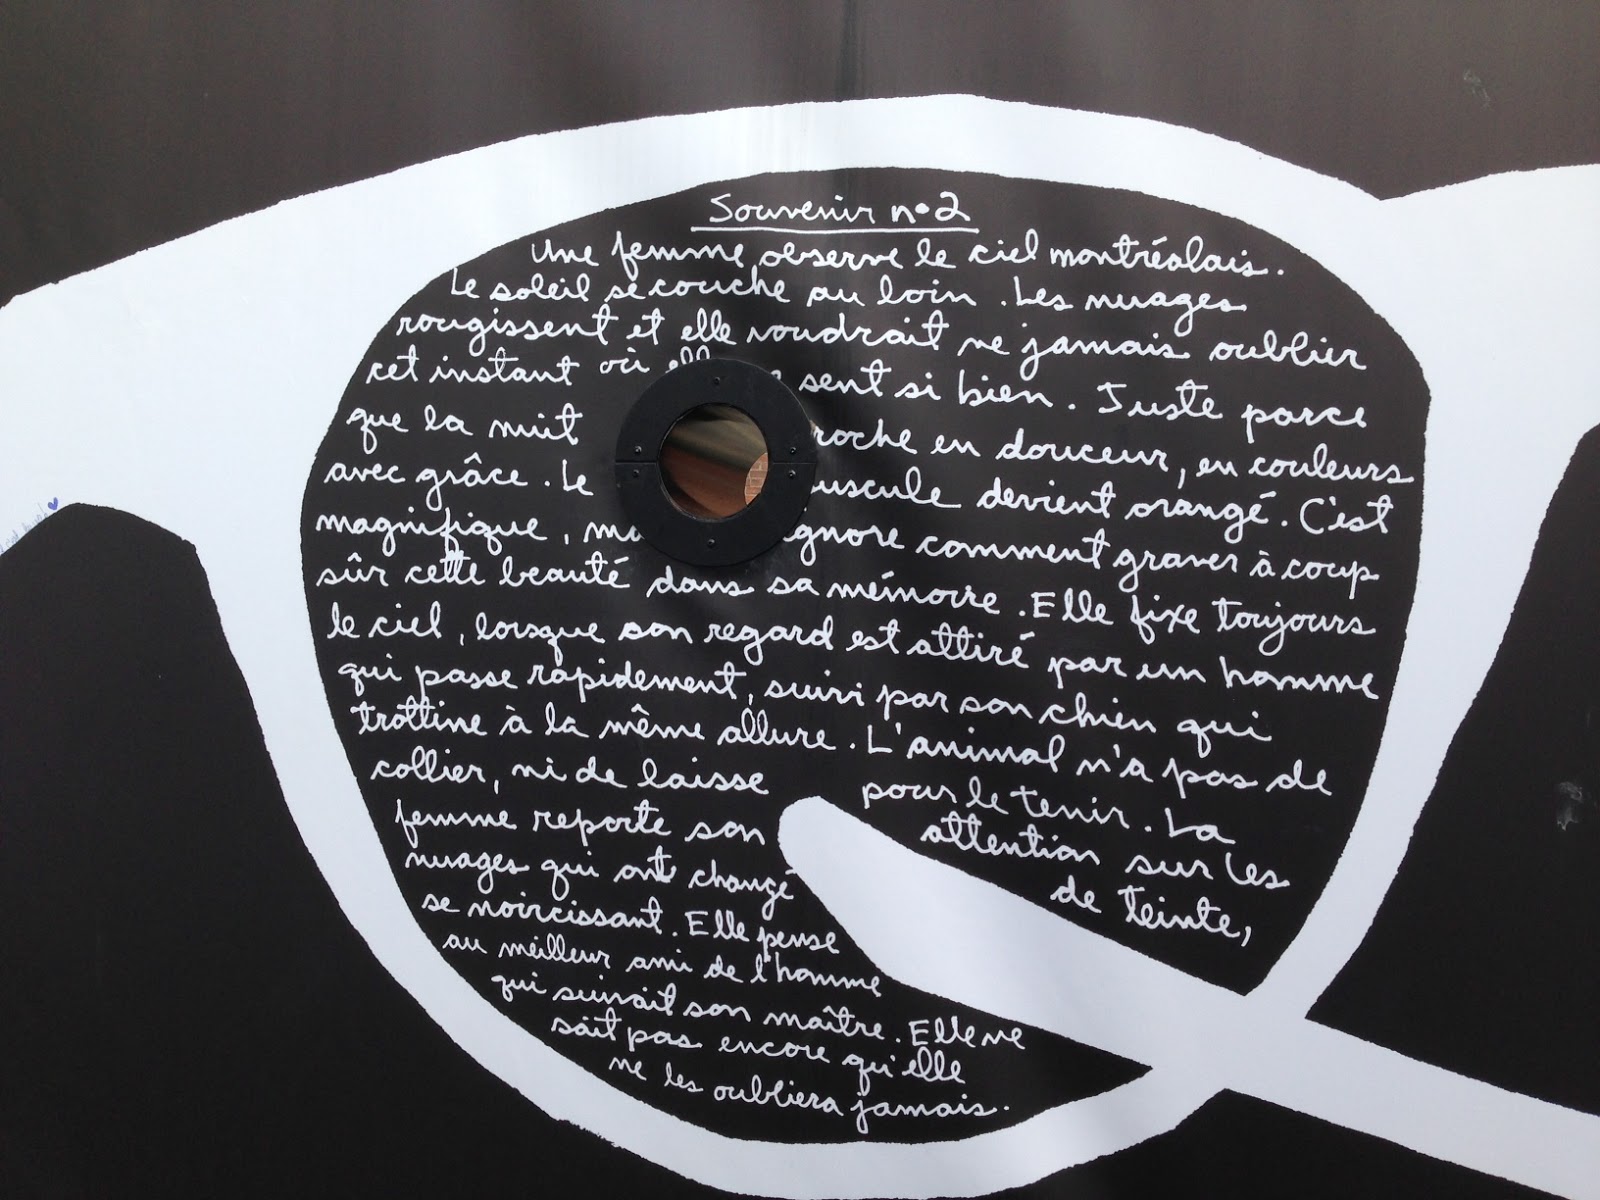 Souvenir n°2
Une femme observe le ciel montréalais.
Le soleil se couche au loin. Les nuages
rougissent et elle voudrait ne jamais oublier
cet instant où sent si bien. Juste parce
que la nuit roche en douceur, en couleurs
avec grâce. Le uscule devient orangé. C'est
magnifique, ma gnore comment graver à coup
sûr cette beauté dans sa mémoire. Elle fixe toujours
le ciel, lorsque son regard est attiré par un homme
qui passe rapidement, suivi par son chien qui
trottine à la même allure. L'animal n'a pas de
collier, ni de laisse pour le tenir. La
femme reporte son attention sur les
nuages qui ont changé de teinte,
se noircissant. Elle pense
au meilleur ami de l'homme
qui suivait son maître. Elle ne
sait pas encore qu'elle
ne les oubliera jamais.